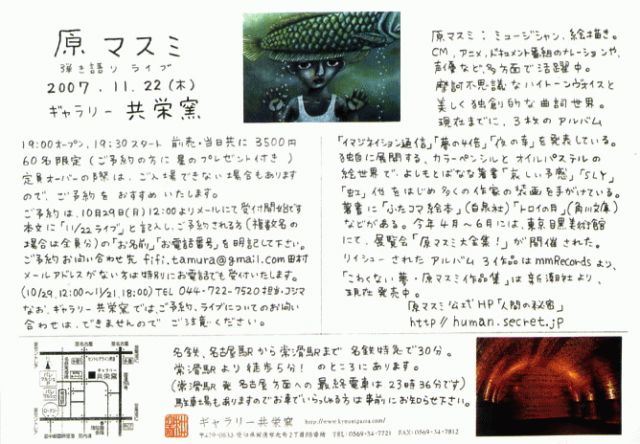 原 マスミ
弾き語り ライブ
2007. 11. 22 (木)
ギャラリー 共栄窯
原マスミ：ミュージシャン、絵描き。
CM、アニメ、ドキュメント番組のナレーションや、
声優など、多方面で活躍中。
摩訶不思議なハイトーンヴォイスと
美しく独創的な曲詞世界。
現在までに、3枚のアルバム
「イマジネイション通信」「夢の4倍」「夜の幸」を発表している。
独自に展開する、カラーペンシルとオイルパステルの
絵世界で、よしもとばなな著書「哀しい予感」「SLY」
「虹」他をはじめ多くの作家の装画を手がけている。
著書に「ふたコマ絵本」(白泉社)「トロイの月」(角川文庫)
などがある。今年4月～6月には、東京目黒美術館
にて、展覧会「原マスミ大全集！」が開催された。
リイシューされたアルバム3作品はmmRecordsより、
「こわくない夢・原マスミ作品集」は新潮社より、
現在発売中。
原マスミ公式HP「人間の秘密」
http://human.secret.jp
19:00オープン, 19:30スタート 前売・当日共に 3500円
60名限定 (ご予約の方に星のプレゼント付き)
定員オーバーの際は、ご入場できない場合もあります
ので、ご予約をおすすめいたします。
ご予約は、10月29日(月)12:00よりメールにて受付開始です
本文に「11/22ライブ」と記入し、ご予約される方(複数名の
場合は全員分)の「お名前」「お電話番号」を明記して下さい。
ご予約お問い合わせ先 fifi.tamura@gmail.com 田村
メールアドレスがない方は特別にお電話でも受付いたします。
(10/29.12:00～11/21.18:00) TEL 044-722-7520 担当・コジマ
なお、ギャラリー共栄窯では、ご予約、ライブについてのお問い
合わせは、できませんのでご注意ください。
ギャラリー
共栄窯
名鉄、名古屋駅から常滑駅まで名鉄特急で30分。
常滑駅より徒歩5分！のところにあります。
(常滑駅発名古屋方面への最終電車は23時36分です)
駐車場もありますのでお車でいらっしゃる方は事前にお知らせ下さい。
ギャラリー共栄窯
TEL: 0569-34-7721 FAX: 0569-34-7812